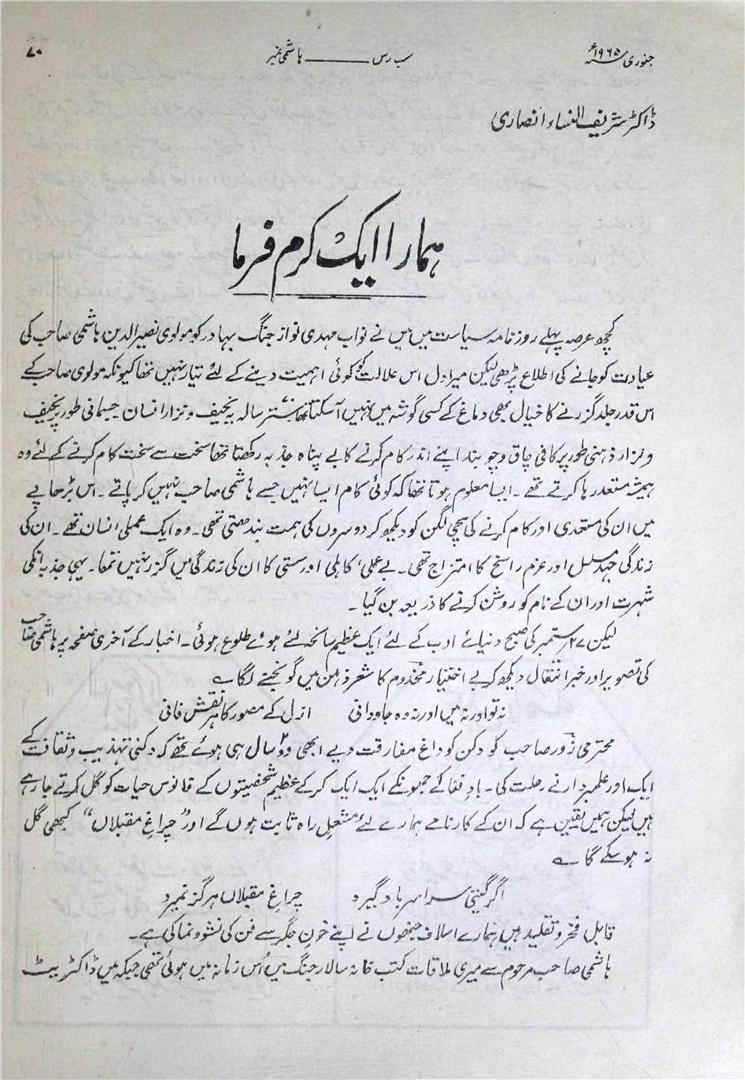 جنوری ۱۹۶۵ء سب رس ـــــــــ ہاشمی نمبر ۷۰
ڈاکٹر شریف النساء انصاری
ہمارا ایک کرم فرما
کچھ عرصہ پہلے روزنامہ سیاست میں میں نے نواب مہدی نواز جنگ بہادر کو مولوی نصیر الدین ہاشمی صاحب کی
عیادت کو جانے کی اطلاع پڑھی لیکن میرا دل اس علالت کو کوئی اہمیت دینے کے لئے تیار نہیں تھا کیونکہ مولوی صاحب کے
اس قدر جلد گزرنے کا خیال بھی دماغ کے کسی گوشہ میں نہیں آسکتا تھا ستر سالہ نحیف و نزار انسان جسمانی طور پر نحیف
و نزار ذہنی طور پر کافی چاق و چوبند اپنے اندر کام کرنے کا بے پناہ جذبہ رکھتا تھا سخت سے سخت کام کرنے کے لئے وہ
ہمیشہ مستعد رہا کرتے تھے ۔ ایسا معلوم ہوتا تھا کہ کوئی کام ایسا نہیں جسے ہاشمی صاحب نہیں کر پاتے ۔ اس بڑھاپے
میں ان کی مستعدی اور کام کرنے کی سچی لگن کو دیکھ کر دوسروں کی ہمت بندھتی تھی ۔ وہ ایک عملی انسان تھے ۔ ان کی
زندگی جہد مسلسل اور عزم راسخ کا امتزاج تھی ۔ بے عملی ، کاہلی اور سستی کا ان کی زندگی میں گزر نہیں تھا ۔ یہی جذبہ انکی
شہرت اور ان کے نام کو روشن کرنے کا ذریعہ بن گیا ۔
لیکن ۲۷ ستمبر کی صبح دنیائے ادب کے لئے ایک عظیم سانحہ لئے ہوئے طلوع ہوئی ۔ اخبار کے آخری صفحہ پر ہاشمی صاحب
کی تصویر اور خبر انتقال دیکھ کر بے اختیار مخدوم کا شعر ذہن میں گونجنے لگا ؎
نہ تو اور نہ میں اور نہ وہ جاودانی ازل کے مصور کا ہر نقش فانی
محترمی زور صاحب کو دکن کو داغ مفارقت دیے ابھی دو سال ہی ہوئے تھے کہ دکنی تہذیب و ثقافت کے
ایک اور علمبردار نے رحلت کی ۔ باد فنا کے جھونکے ایک ایک کر کے عظیم شخصیتوں کے فانوس حیات کو گل کرتے جا رہے
ہیں لیکن ہمیں یقین ہے کہ ان کے کارنامے ہمارے لئے مشعلِ راہ ثابت ہوں گے اور ”چراغِ مقبلاں“ کبھی گل
نہ ہو سکے گا ؎
اگر گیتی سراسر باد گیرد چراغِ مقبلاں ہرگز نمیرد
قابل فخر و تقلید ہیں ہمارے اسلاف جنھوں نے اپنے خون جگر سے فن کی نشوونما کی ہے ۔
ہاشمی صاحب مرحوم سے میری ملاقات کتب خانہ سالار جنگ میں اُس زمانہ میں ہوئی تھی جبکہ میں ڈاکٹریٹ